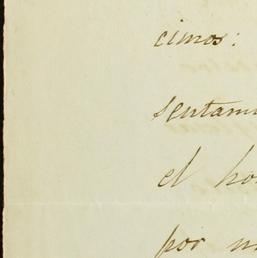 cimos:
sentam
el ho
por m